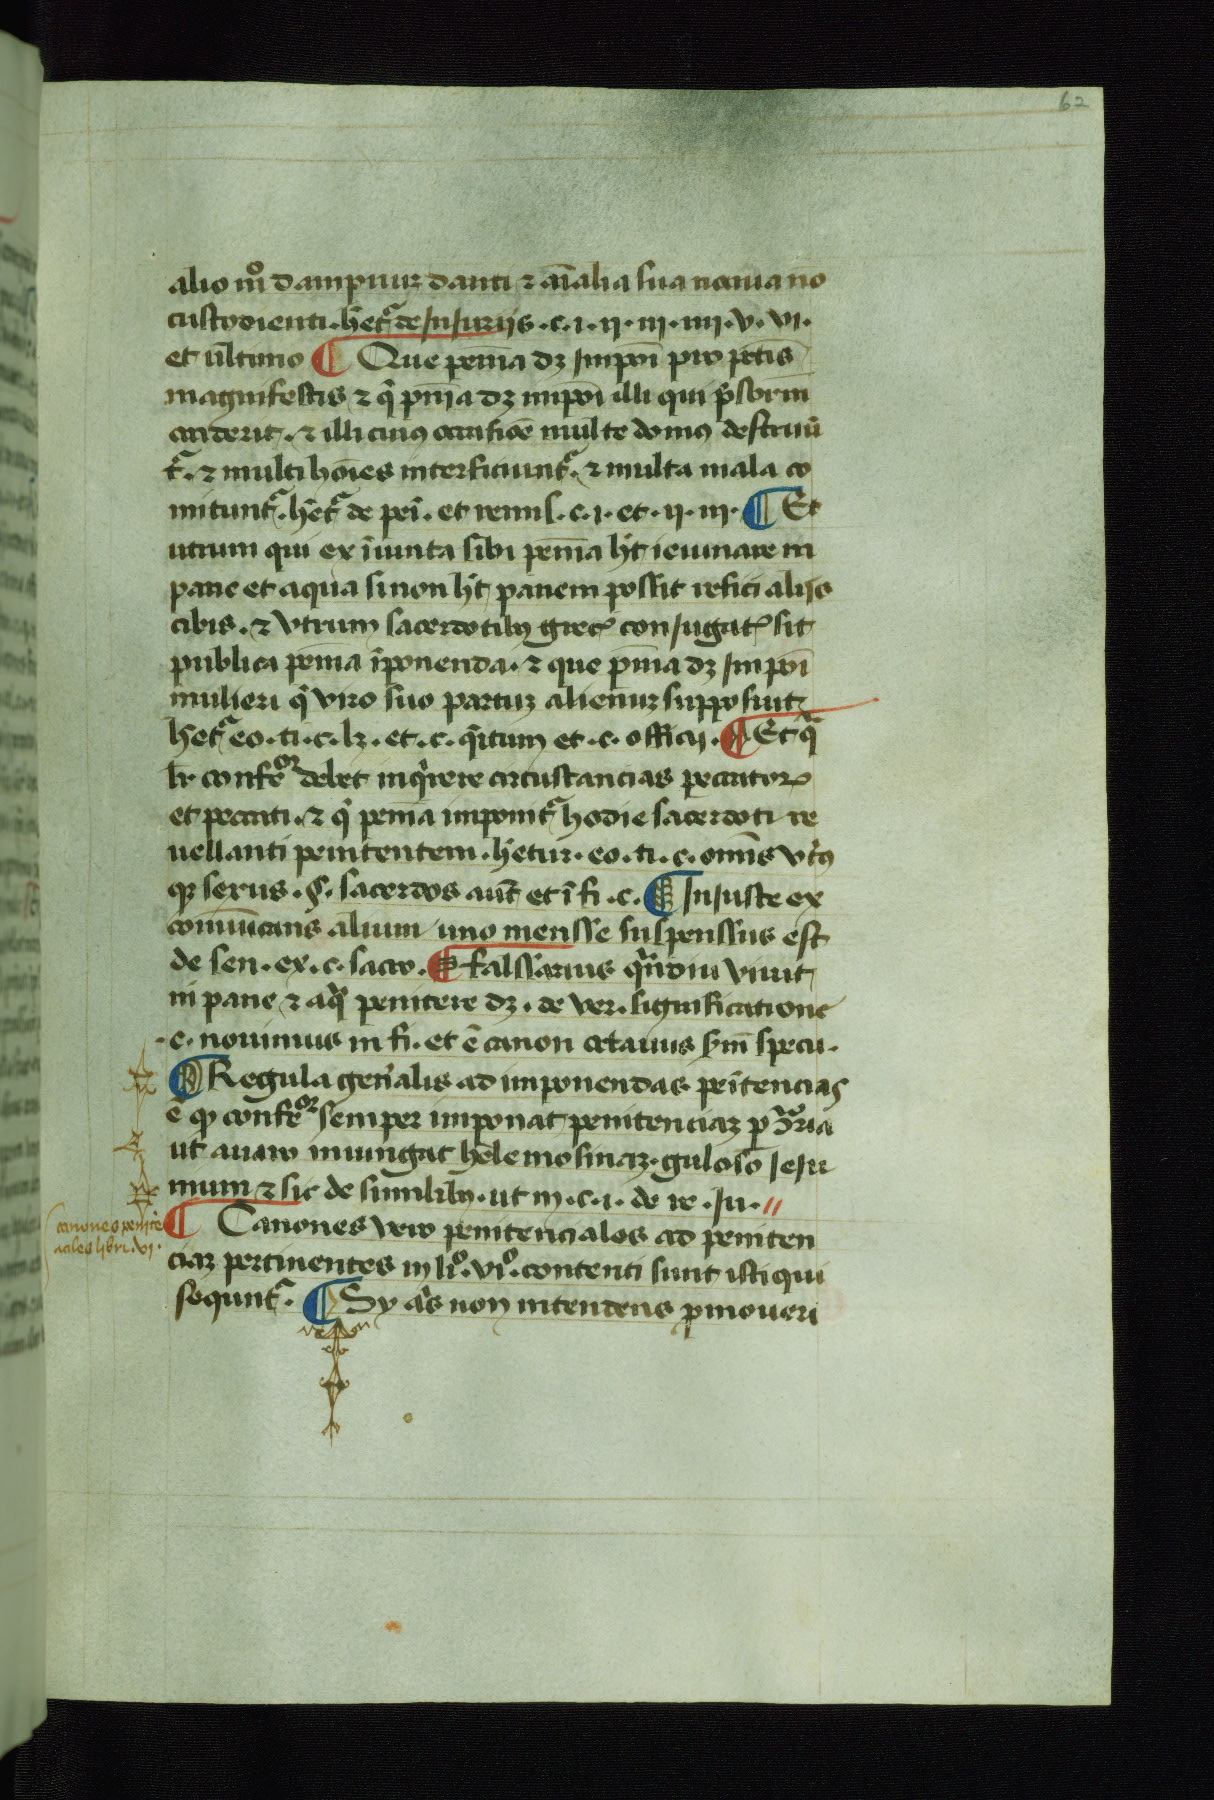 62
alio mͦ dampnuꝫ danti ⁊ aīalia sua nociua nō
custodienti. het̉ de Iniuriis .c.i.ii.iii.iiii.v.vi.
et ultimo ¶ Que penīa dꝫ Impoī pro pctīs
magnifestis ⁊ q̄ pnīa dꝫ impoī illi qui
⁊ illi cuiꝰ multe domꝰ destruū
t̉. ⁊ multi hoīes interficiunt̉. ⁊ multa mala co
mitunt̉. het̉ de peī. et remis.c.i. et .ii.iii. ¶ Et
utrum qui ex īiuncta sibi penīa ht̄ ieiunare in
pane et aqua si non ht̄ panem possit refici aliis
cibis. ⁊ vtrum sacerdotibꝰ grecꝭ coniugatꝭ sit
publica penīa īponenda. ⁊ que pnīa dꝫ Impoī
mulieri q̄ viro suo partuꝫ alienuꝫ supposuit
het̉ eo.ti.c.lꝫ. et .c. q̄situm et .c. officii. ¶ Et q̄
lr̄ confeͦꝛ debet inq̄rere circustancias peccatoꝝ
et peccati. ⁊ q̄ penīa imponit̉ hodie sacerdoti re
uellanti penitentem. hetur. eo.ti.c. omīs vtͥꝰ
qꝫ sexus .§. sacerdos aut̄ et ī fi.c. ¶ Iniuste ex
comūicans alium uno mensse suspenssus est
de sen.ex.c. sacro. ¶ falssarius qͣndiu viuit
in pane ⁊ aqͣ penitere dꝫ. de ver. significatione
.c. nouimus in fi. et ē canon octauus sm̄ specu.
¶ Regula gen̄alis ad imponendas peītencias
ē ꝙ confeͦꝛ semper imponat penitenciaꝫ ꝯͣria
ut auaro iniungat helemosinaꝫ. guloso Ieiu
nium ⁊ sic de similibꝰ. ut in .c.i. de re.Iu. //
¶ Canones vero penitenciales ad peniten
ciaꝫ pertinentes in liͦ. viͦ. contenti sunt isti qui
sequnt̉. ¶ Sy qͥs non intendens ꝓmoueri
canones penitē
ciales libri .vi.